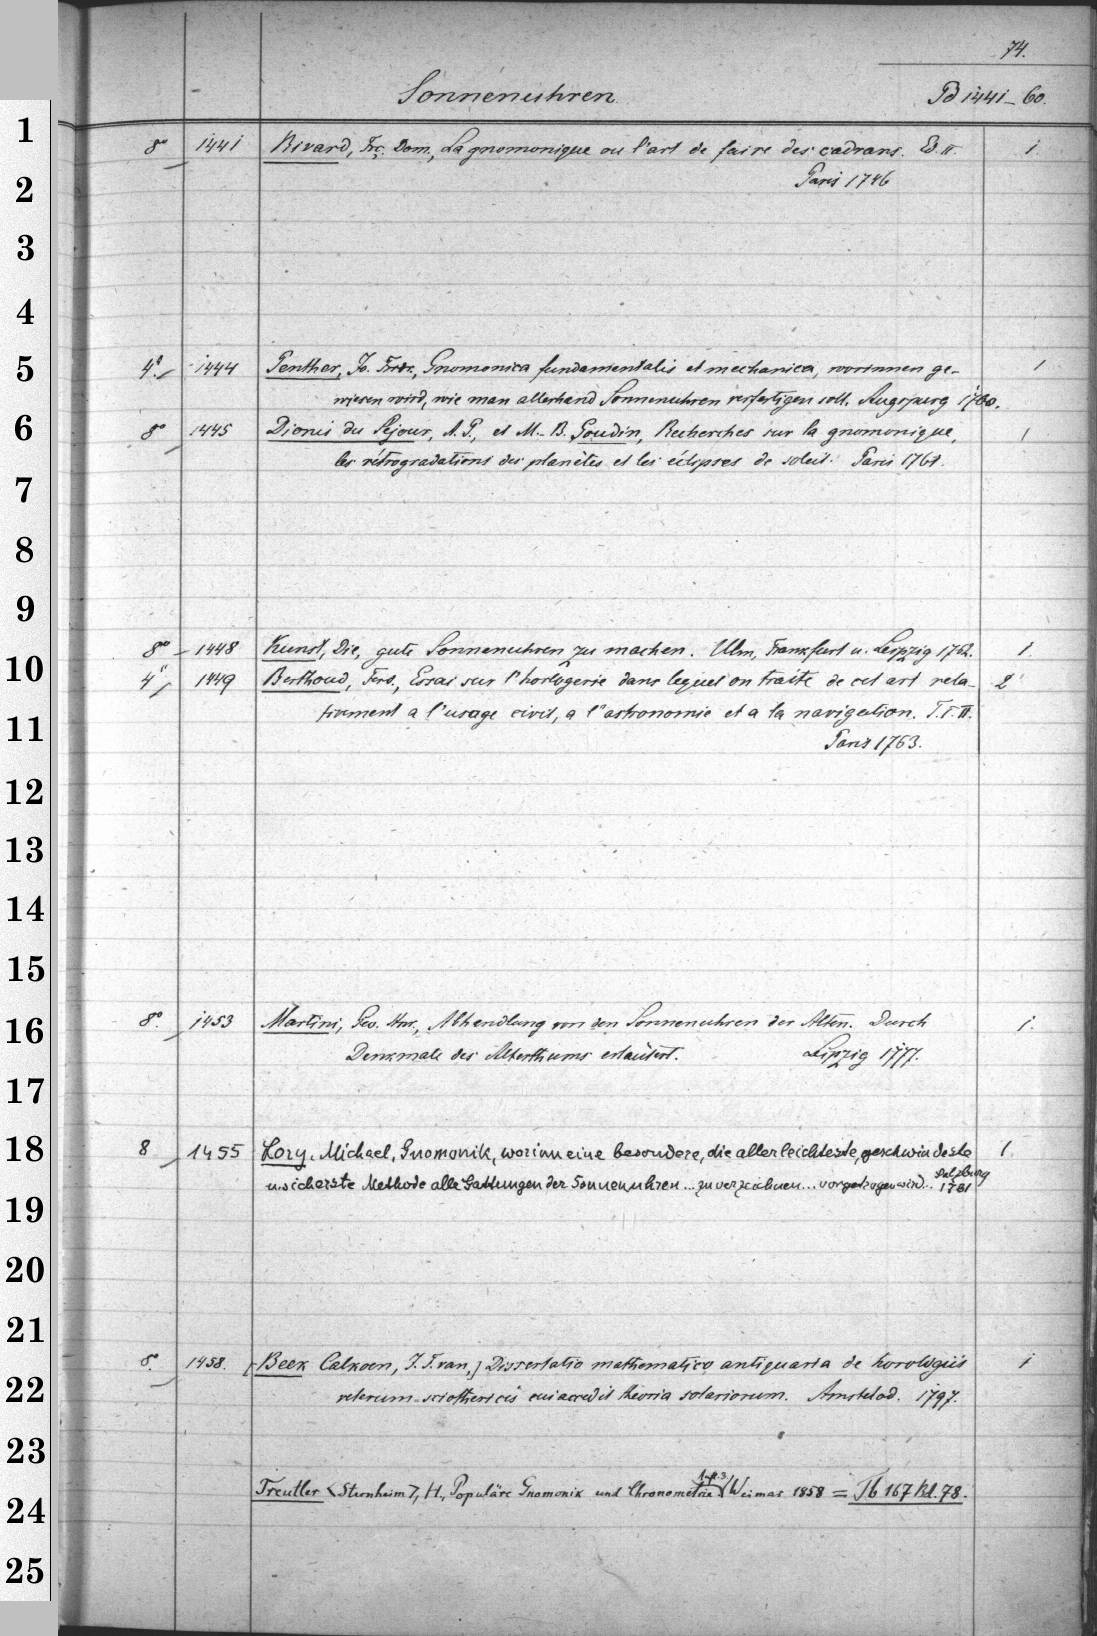 74.
Sonnenuhren
Pd 1441-60.
8° 1441 Rivard, Frç. Dom., La gnomonique ou l'art de faire des cadrans. Ed. II. 1
Paris 1746
4° 1444 Penther, Jo. Frdr., Gnomonica fundamentalis et mechanica, worinnen ge-
wiesen wird, wie man allerhand Sonnenuhren verfertigen soll. Augspurg 1760. 1
8° 1445 Dionis du Séjour, A. P., et M.-B. Goudin, Recherches sur la gnomonique, 1
les rétrogradations des planètes et les éclipses de soleil. Paris 1761.
8° 1448 Kunst, Die, gute Sonnenuhren zu machen. Ulm, Frankfurt u. Leipzig 1762. 1
4° 1449 Berthoud, Ferd., Essai sur l'horlogerie dans lequel on traite de cet art rela- 2
tivement a l'usage civil, a l'astronomie et a la navigation. T. I. II.
Paris 1763.
8° 1453 Martini, Geo. Hnr., Abhandlung von den Sonnenuhren der Alten. Durch 1.
Denkmale des Alterthums erläutert. Leipzig 1777.
8 1455 Lory, Michael, Gnomonik, worinn eine besondere, die allerleichteste, geschwindeste 1
u. sicherste Methode alle Gattungen der Sonnenuhren ... zu verzeichnen ... vorgetragen wird. Salzburg
1781
8. 1458. (Beek Calkoen, J. F. van,) Dissertatio mathematico antiquaria de horologiis 1
veterum sciothericis cui accedit theoria solariorum. Amstelod. 1797.
Treutler <Sternheim>, H., Populäre Gnomonik und Chronometrie Aufl. 3 Weimar 1858 = Tb 167 Bd. 78.
1
2
3
4
5
6
7
8
9
10
11
12
13
14
15
16
17
18
19
20
21
22
23
24
25